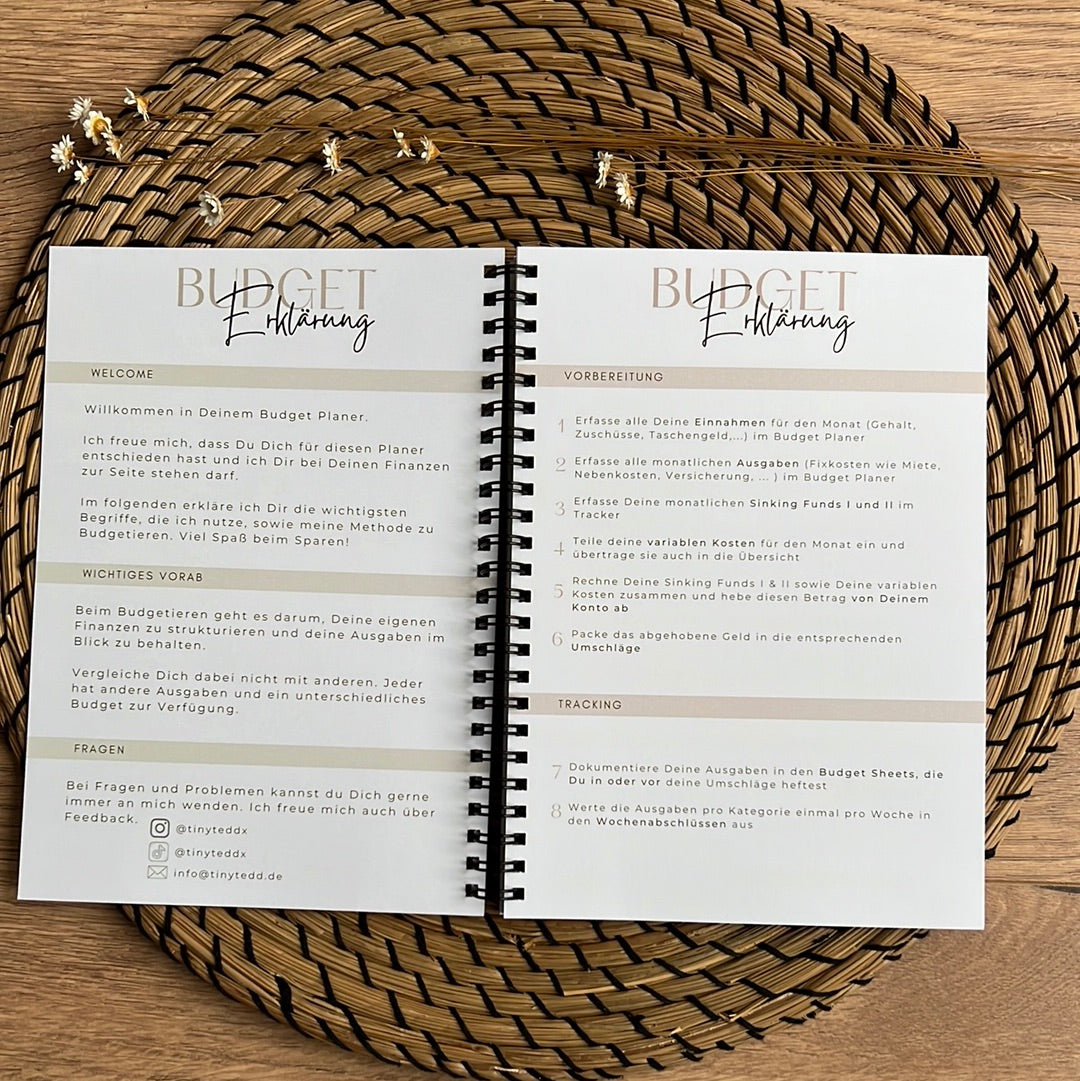 BUDGET
Erklärung
WELCOME
Willkommen in Deinem Budget Planer.
Ich freue mich, dass Du Dich für diesen Planer
entschieden hast und ich Dir bei Deinen Finanzen
zur Seite stehen darf.
Im folgenden erkläre ich Dir die wichtigsten
Begriffe, die ich nutze, sowie meine Methode zu
Budgetieren. Viel Spaß beim Sparen!
WICHTIGES VORAB
Beim Budgetieren geht es darum, Deine eigenen
Finanzen zu strukturieren und deine Ausgaben im
Blick zu behalten.
Vergleiche Dich dabei nicht mit anderen. Jeder
hat andere Ausgaben und ein unterschiedliches
Budget zur Verfügung.
FRAGEN
Bei Fragen und Problemen kannst du Dich gerne
immer an mich wenden. Ich freue mich auch über
Feedback.
@tinyteddx
@tinyteddx
info@tinytedd.de
BUDGET
Erklärung
VORBEREITUNG
1 Erfasse alle Deine Einnahmen für den Monat (Gehalt,
Zuschüsse, Taschengeld,...) im Budget Planer
2 Erfasse alle monatlichen Ausgaben (Fixkosten wie Miete,
Nebenkosten, Versicherung, ... ) im Budget Planer
3 Erfasse Deine monatlichen Sinking Funds I und II im
Tracker
4 Teile deine variablen Kosten für den Monat ein und
übertrage sie auch in die Übersicht
5 Rechne Deine Sinking Funds I & II sowie Deine variablen
Kosten zusammen und hebe diesen Betrag von Deinem
Konto ab
6 Packe das abgehobene Geld in die entsprechenden
Umschläge
TRACKING
7 Dokumentiere Deine Ausgaben in den Budget Sheets, die
Du in oder vor deine Umschläge heftest
8 Werte die Ausgaben pro Kategorie einmal pro Woche in
den Wochenabschlüssen aus